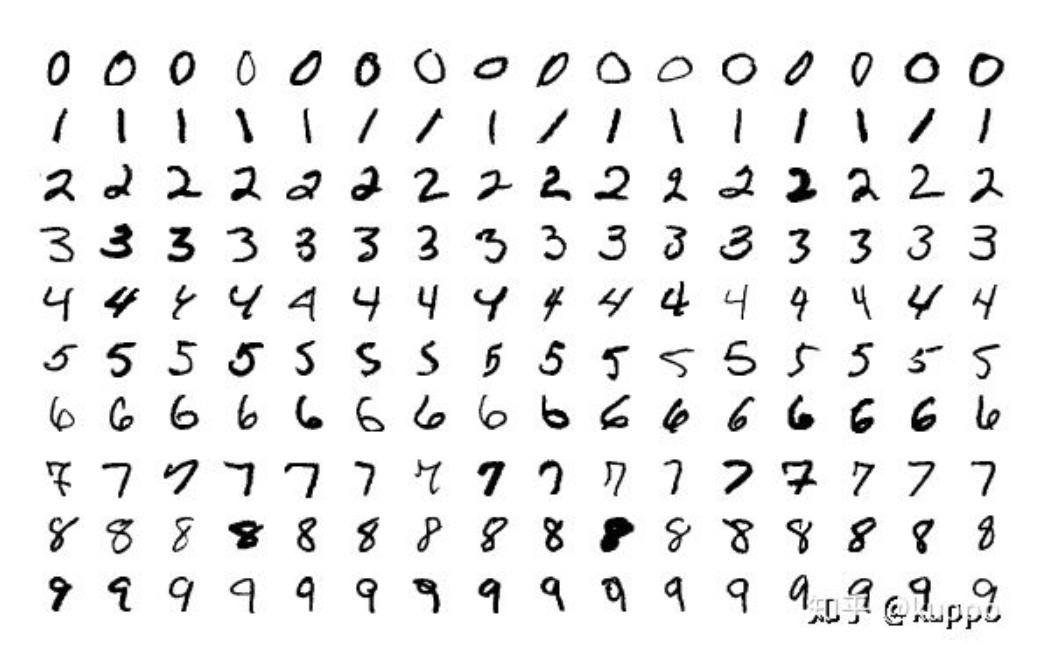 0 0 0 0 0 0 0 0 0 0 0 0 0 0 0 0
1 1 1 1 1 1 1 1 1 1 1 1 1 1 1 1
2 2 2 2 2 2 2 2 2 2 2 2 2 2 2 2
3 3 3 3 3 3 3 3 3 3 3 3 3 3 3 3
4 4 4 4 4 4 4 4 4 4 4 4 4 4 4 4
5 5 5 5 5 5 5 5 5 5 5 5 5 5 5 5
6 6 6 6 6 6 6 6 6 6 6 6 6 6 6 6
7 7 7 7 7 7 7 7 7 7 7 7 7 7 7 7
8 8 8 8 8 8 8 8 8 8 8 8 8 8 8 8
9 9 9 9 9 9 9 9 9 9 9 9 9 9 9 9
知乎 @kuppo